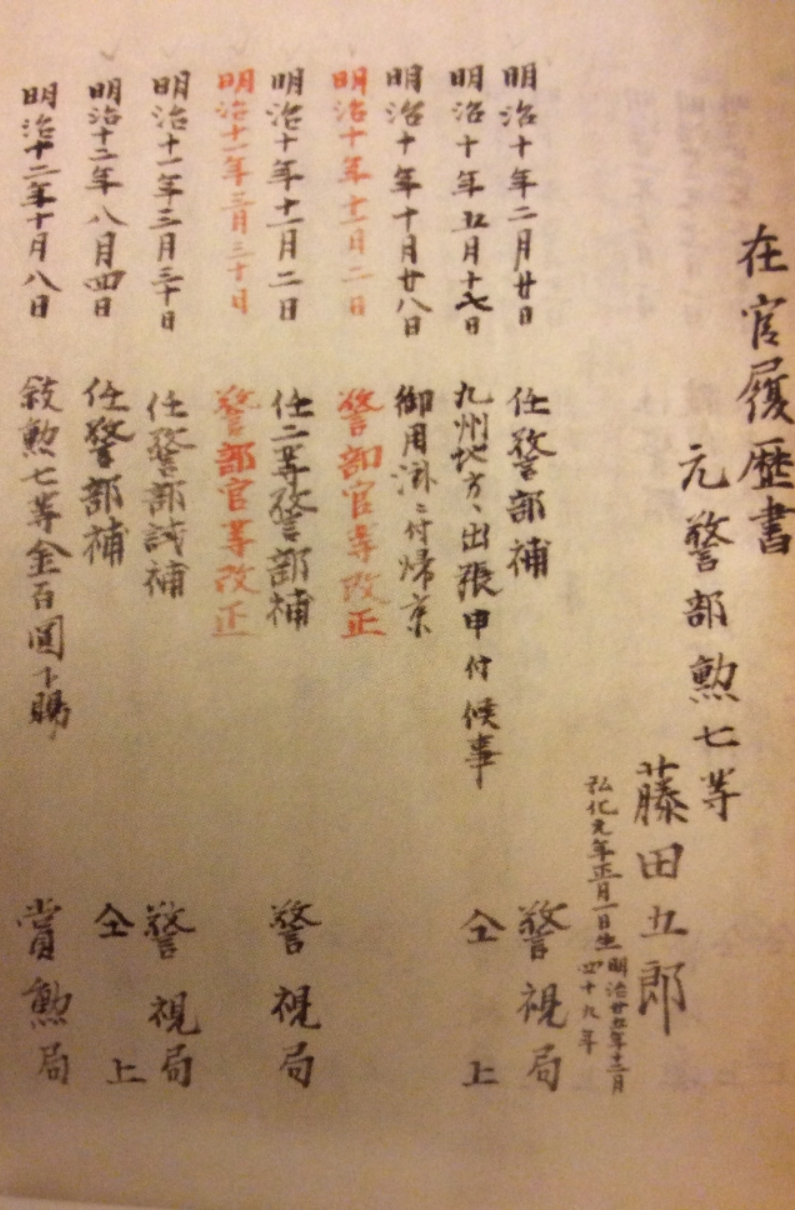 在官履歴書
元警部勲七等
藤田五郎
弘化元年正月一日生
明治廿五年十二月
四十九年
明治十年二月廿日 任警部補 警視局
明治十年五月十七日 九州地方ヘ出張申付候事 仝上
明治十年十月廿八日 御用済ニ付帰京
明治十年十二月二日 警部官等改正
明治十年十二月二日 任二等警部補 警視局
明治十一年三月三十日 警部官等改正
明治十一年三月三十日 任警部試補 警視局
明治十二年八月四日 任警部補 仝上
明治十二年十月八日 敍勲七等金百圓下賜 賞勲局